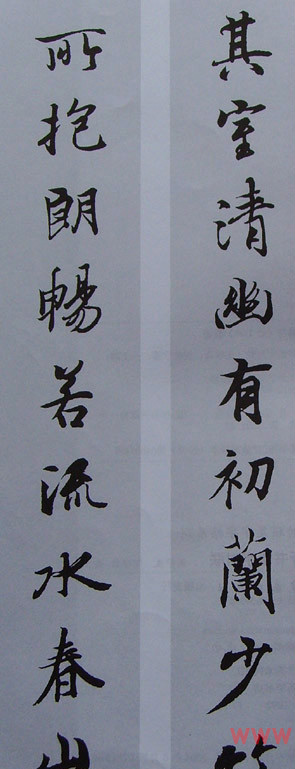 其室清幽有初蘭少
所抱朗暢若流水春
www